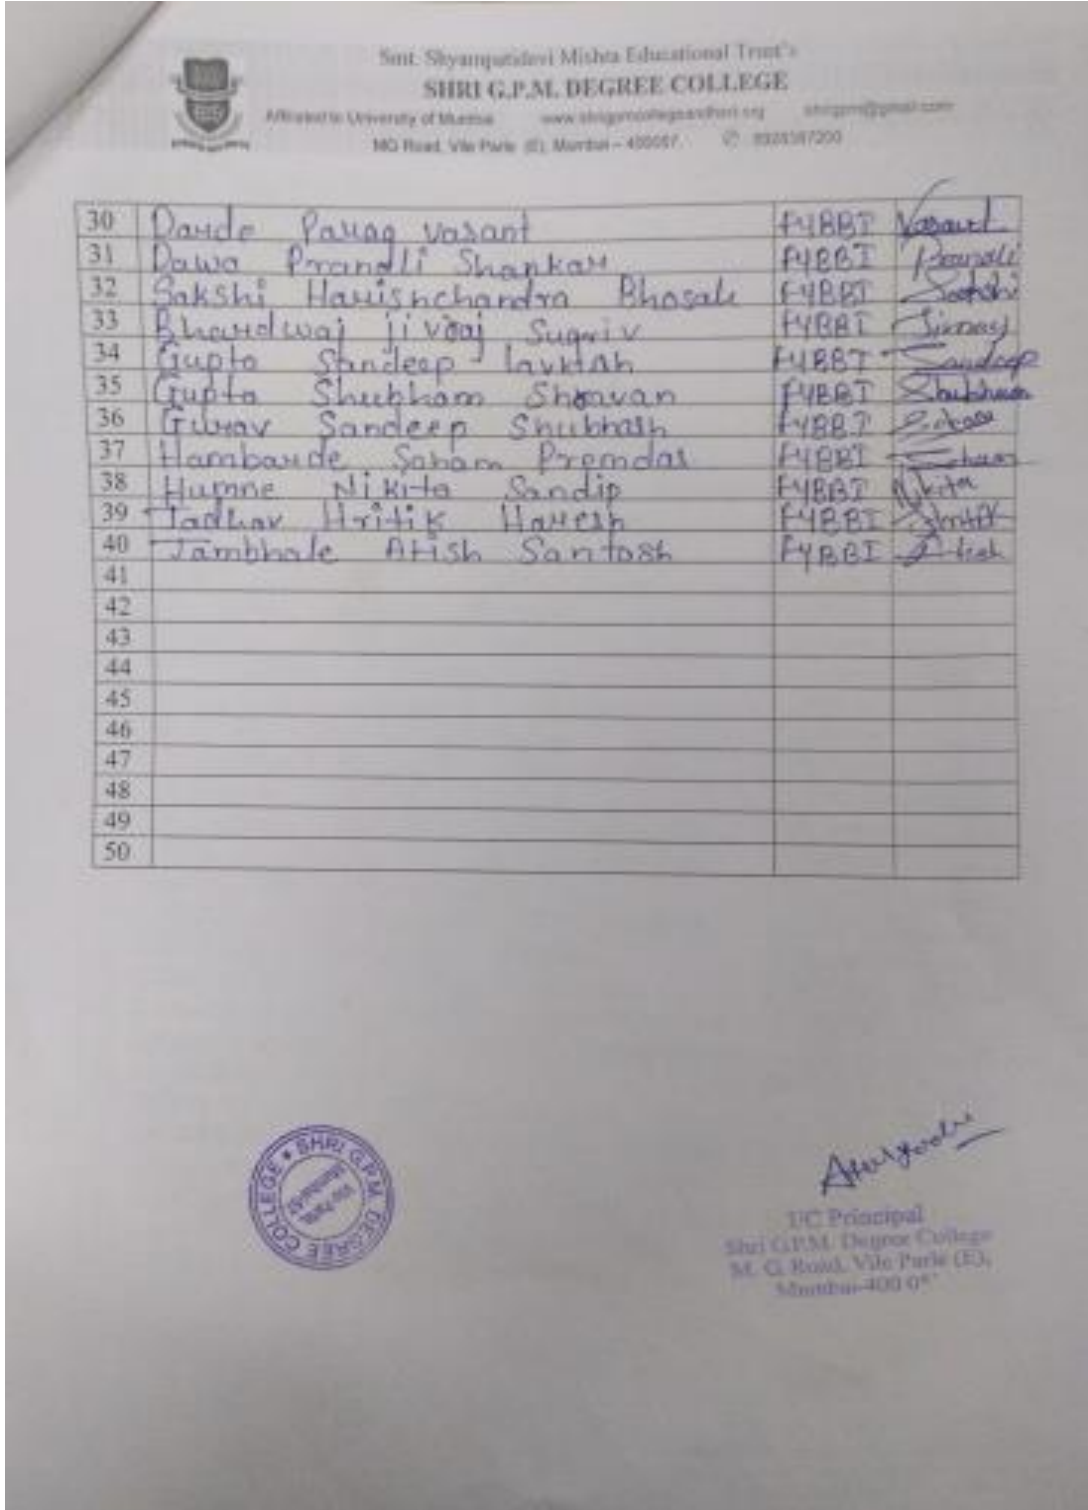 Smt. Shyampatidevi Mishra Educational Trust's
SHRI G.P.M. DEGREE COLLEGE
Affiliated to University of Mumbai
MG Road, Vile Parle (E), Mumbai – 400057.
30 Darde Parag vasant FYBBI Vasant
31 Dawa Pranali Shankar FYBBI Pranali
32 Sakshi Harishchandra Bhosale FYBBI Sakshi
33 Bhardwaj jivraj Sugriv FYBBI
34 Gupta Sandeep FYBBI Sandeep
35 Gupta Shubham Shravan FYBBI Shubham
36 Gurav Sandeep Shubhash FYBBI
37 Hambarde Soham Premdas FYBBI Soham
38 Humne Nikita Sandip FYBBI Nikita
39 Jadhav Hritik Haresh FYBBI Hritik
40 Jambhale Atish Santosh FYBBI Atish
41
42
43
44
45
46
47
48
49
50
SHRI G.P.M. DEGREE COLLEGE
Vile Parle,
I/C Principal
Shri G.P.M. Degree College
M. G. Road, Vile Parle (E),
Mumbai-400